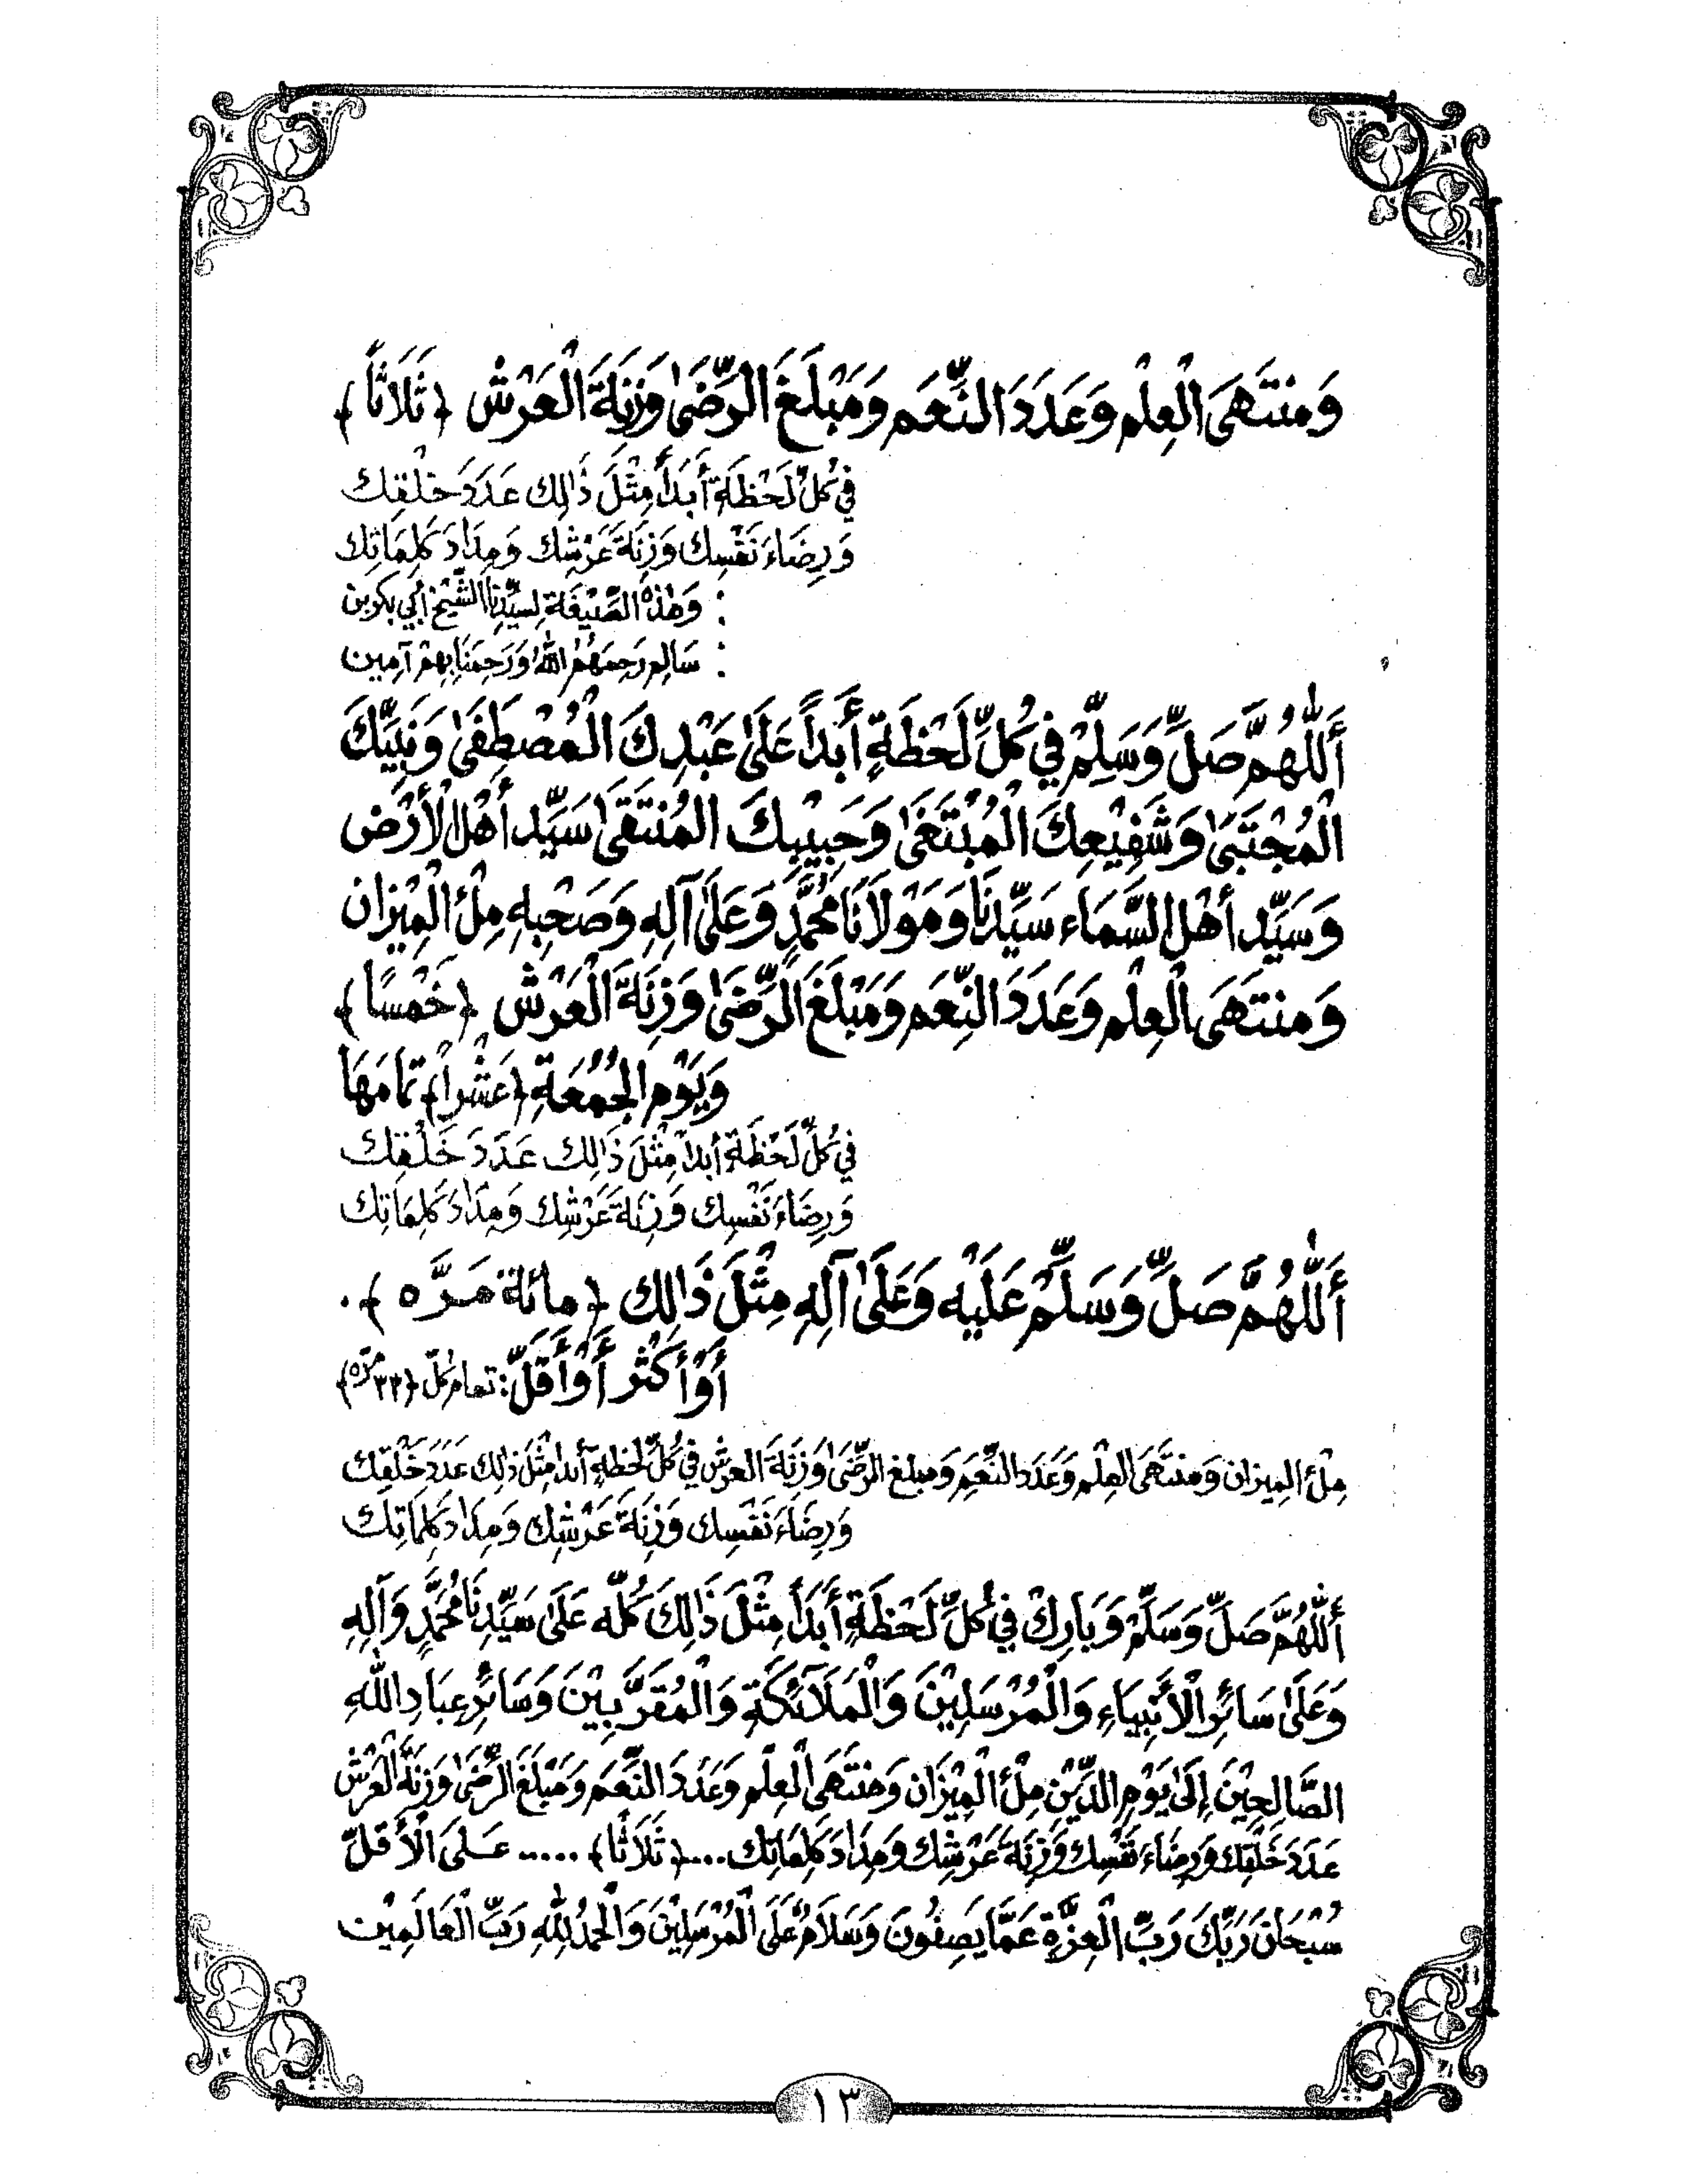 وَمُنتَهَى الْعِلْمِ وَعَدَدَ النِّعَمِ وَمَبْلَغَ الرِّضَىٰ وَزِنَةَ الْعَرْشِ ﴿ثَلَاثاً﴾
فِي كُلِّ لَحْظَةٍ أَبَداً مِثْلَ ذَالِكَ عَدَدَ خَلْقِكَ
وَرِضَاءَ نَفْسِكَ وَزِنَةَ عَرْشِكَ وَمِدَادَ كَلِمَاتِكَ
: وَهٰذِهِ الصِّيغَةِ لِسَيِّدِنَا الشَّيْخِ أَبِي بَكْرِ بْن
: سَالِمٍ رَحِمَهُمُ اللهُ وَرَحِمَنَا بِهِمْ آمِين
أَللّٰهُمَّ صَلِّ وَسَلِّمْ فِي كُلِّ لَحْظَةٍ أَبَداً عَلَىٰ عَبْدِكَ الْمُصْطَفَىٰ وَنَبِيِّكَ
الْمُجْتَبَىٰ وَشَفِيْعِكَ الْمُبْتَغَىٰ وَحَبِيْبِكَ الْمُنْتَقَىٰ سَيِّدِ أَهْلِ الْأَرْضِ
وَسَيِّدِ أَهْلِ السَّمَاءِ سَيِّدِنَا وَمَوْلَانَا مُحَمَّدٍ وَعَلَىٰ آلِهِ وَصَحْبِهِ مِلْئَ الْمِيْزَانِ
وَمُنتَهَى الْعِلْمِ وَعَدَدَ النِّعَمِ وَمَبْلَغَ الرِّضَىٰ وَزِنَةَ الْعَرْشِ ﴿خَمْسًا﴾
وَيَوْمِ الْجُمُعَةِ ﴿عَشْراً﴾ تَمَامَهَا
فِي كُلِّ لَحْظَةٍ أَبَداً مِثْلَ ذَالِكَ عَدَدَ خَلْقِكَ
وَرِضَاءَ نَفْسِكَ وَزِنَةَ عَرْشِكَ وَمِدَادَ كَلِمَاتِكَ
أَللّٰهُمَّ صَلِّ وَسَلِّمْ عَلَيْهِ وَعَلَىٰ آلِهِ مِثْلَ ذَالِكَ ﴿مِائَة مَرَّه﴾.
أَوْ أَكْثَر أَوْ أَقَلّ: تمام كُلّ ﴿٣٣ مَرّه﴾
مِلْئَ الْمِيزَانِ وَمُنتَهَى الْعِلْمِ وَعَدَدَ النِّعَمِ وَمَبلَغَ الرِّضَىٰ وَزِنَةَ الْعَرْشِ فِي كُلِّ لَحْظَةٍ أَبَداً مِثْلَ ذَالِكَ عَدَدَ خَلْقِكَ
وَرِضَاءَ نَفْسِكَ وَزِنَةَ عَرْشِكَ وَمِدَادَ كَلِمَاتِكَ
أَللّٰهُمَّ صَلِّ وَسَلِّمْ وَبَارِكْ فِي كُلِّ لَحْظَةٍ أَبَداً مِثْلَ ذَالِكَ كُلِّهِ عَلَىٰ سَيِّدِنَا مُحَمَّدٍ وَآلِهِ
وَعَلَىٰ سَائِرِ الْأَنْبِيَاءِ وَالْمُرْسَلِيْنَ وَالْمَلَآئِكَةِ وَالْمُقَرَّبِيْنَ وَسَائِرِ عِبَادِ اللهِ
الصَّالِحِيْنَ إِلَىٰ يَوْمِ الدِّيْنِ مِلْئَ الْمِيْزَانِ وَمُنتَهَى الْعِلْمِ وَعَدَدَ النِّعَمِ وَمَبْلَغَ الرِّضَىٰ وَزِنَةَ الْعَرْشِ
عَدَدَ خَلْقِكَ وَرِضَاءَ نَفْسِكَ وَزِنَةَ عَرْشِكَ وَمِدَادَ كَلِمَاتِكَ....﴿ثَلَاثًا﴾..... عَـلَى الْأَقَلّ
سُبْحَانَ رَبِّكَ رَبِّ الْعِزَّةِ عَمَّا يَصِفُونَ وَسَلَامٌ عَلَى الْمُرْسَلِيْنَ وَالْحَمْدُ لِلّٰهِ رَبِّ الْعَالَمِيْنَ
١٣